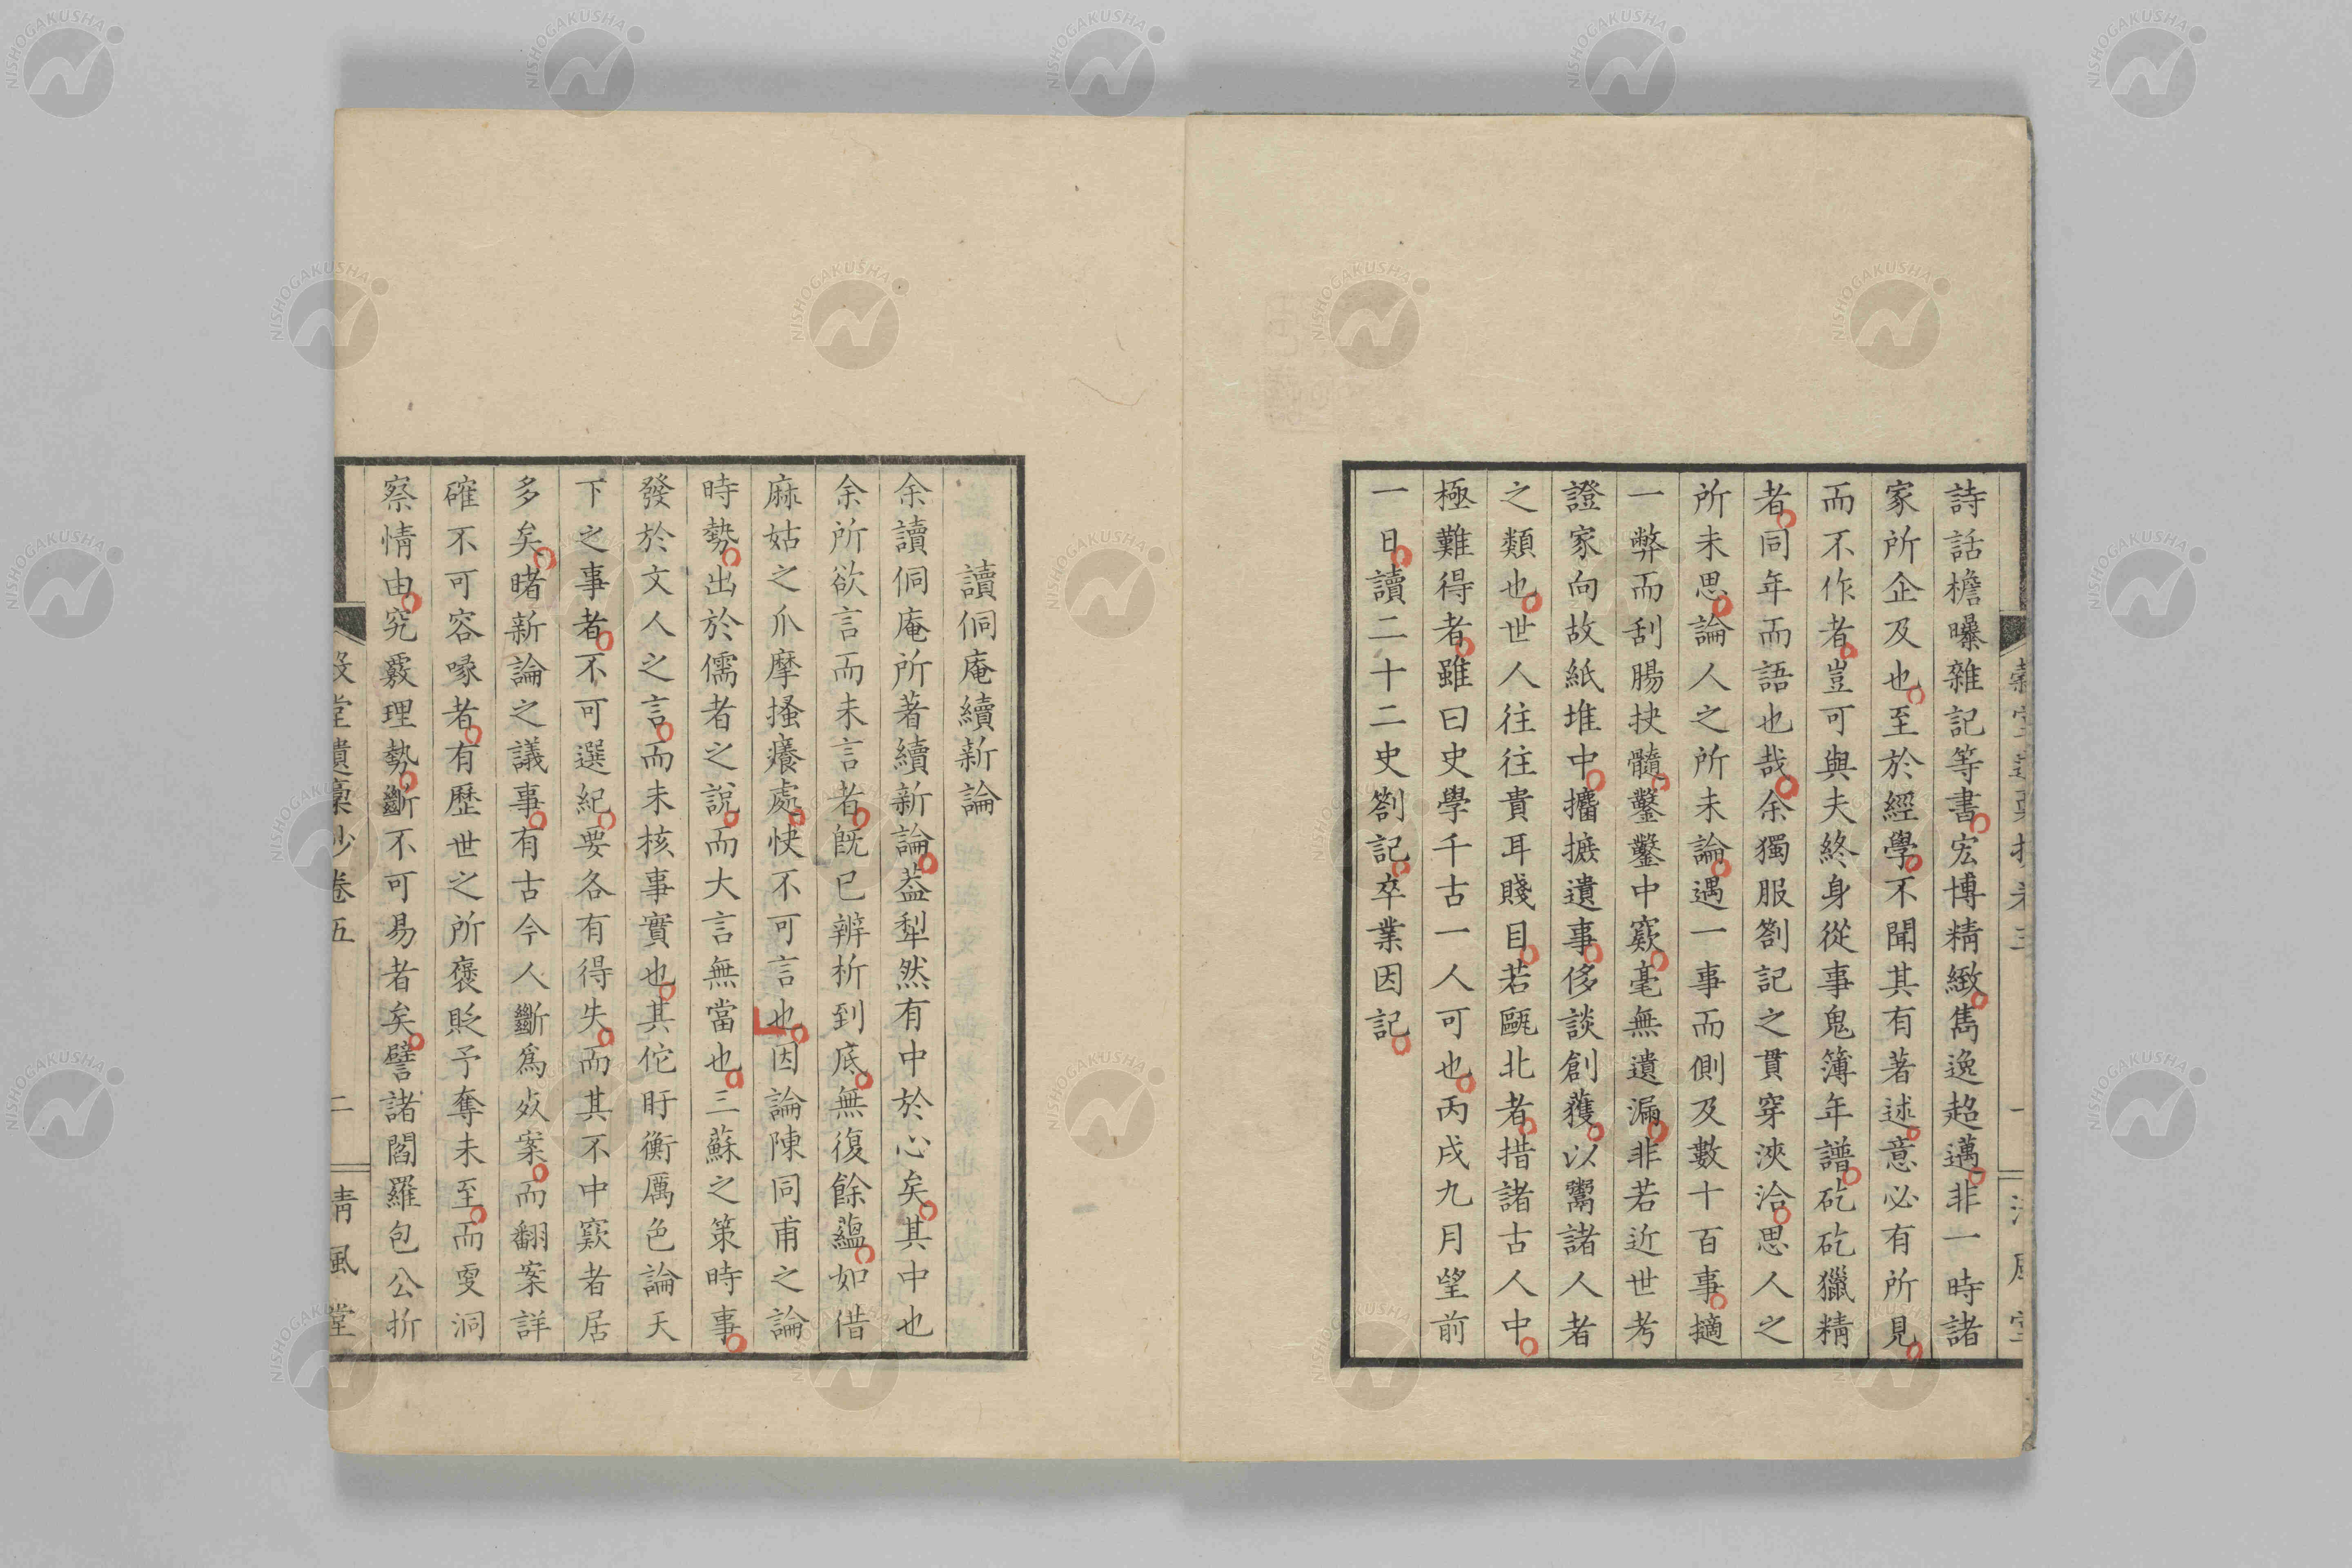 詩話檐曝雜記等書宏博精緻雋逸超邁非一時諸
家所企及也至於經學不聞其有著述意必有所見
而不作者豈可與夫終身從事鬼簿年譜矻矻獵精
者同年而語也哉余獨服劄記之貫穿浹洽思人之
所未思論人之所未論遇一事而側及數十百事擿
一弊而刮腸抉髓鑿鑿中窾毫無遺漏非若近世考
證家向故紙堆中攟摭遺事侈談創獲以鬻諸人者
之類也世人往往貴耳賤目若甌北者措諸古人中
極難得者雖曰史學千古一人可也丙戌九月望前
一日讀二十二史劄記卒業因記
讀侗庵續新論
余讀侗庵所著續新論葢犁然有中於心矣其中也
余所欲言而未言者旣已辨析到底無復餘蘊如借
麻姑之爪摩搔癢處快不可言也因論陳同甫之論
時勢出於儒者之說而大言無當也三蘇之策時事
發於文人之言而未核事實也其佗盱衡厲色論天
下之事者不可選紀要各有得失而其不中窾者居
多矣睹新論之議事有古今人斷爲㸃案而翻案詳
確不可容喙者有歷世之所褒貶予奪未至而更洞
察情由究覈理勢斷不可易者矣譬諸閻羅包公折
堂遺稾抄卷五
二
清風堂
NISHOGAKUSHA